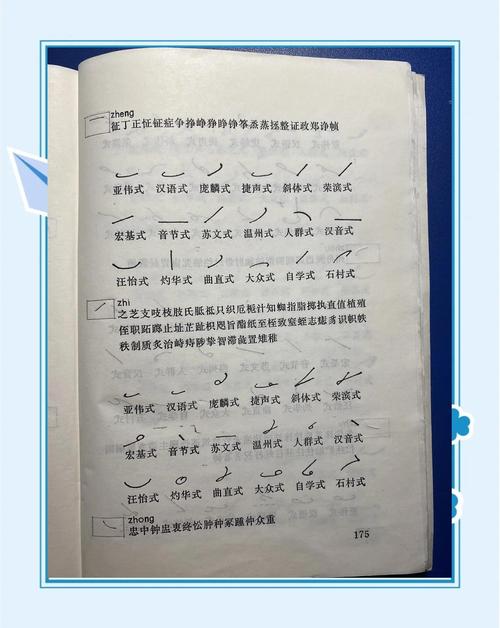 zheng
征丁正怔钲症争挣峥狰睁铮筝烝蒸拯整证政郑诤帧
亚伟式 汉语式 庞麟式 捷声式 斜体式 荣滨式
宏基式 音节式 苏文式 温州式 人群式 汉音式
汪怡式 灼华式 曲直式 大众式 自学式 石村式
zhi
之芝支吱枝肢氏胝祗只织卮栀汁知蜘指脂掷执直值植殖
侄职跖踯止址芷趾枳咫旨酯纸至桎致窒蛭志痣帜识帜轶
秩制质炙治峙痔陟挚智滞彘置雉稚
亚伟式 汉语式 庞麟式 捷声式 斜体式 荣滨式
宏基式 音节式 苏文式 温州式 人群式 汉音式
汪怡式 灼华式 曲直式 大众式 自学式 石村式
zhong
忠中钟盅衷终忪肿种冢踵仲众重
175